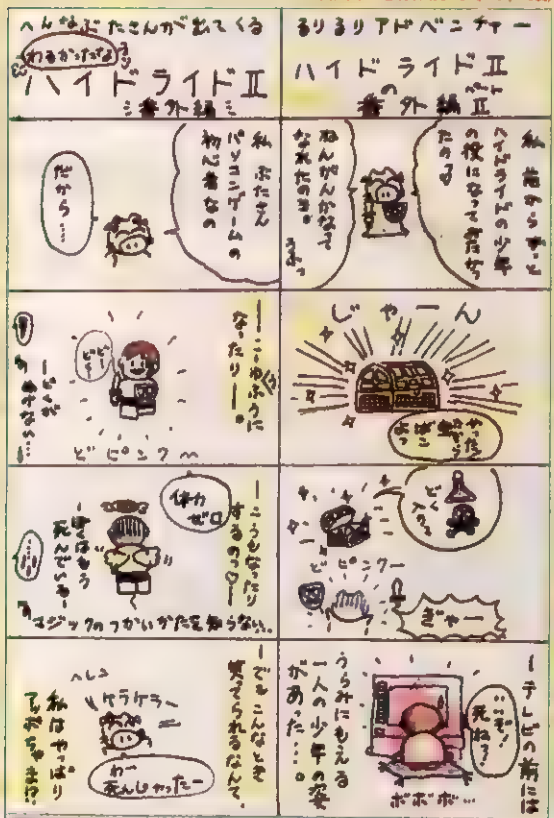 るりるりアドベンチャー
ハイドライドⅡ
の
番外編
私 昔からずっと
ハイドライドの少年
の役になってみたかっ
たのよ
ねんがんかなって
なれたのよ
じゃーん
やったー
宝ばこ
よっ
どく
入り
ビビンクー
ぎゃー
ーテレビの前には
うらみにもえる
一人の少年の姿
があった…。
死ね?
ボボボ…
へんなぶたさんが出てくる
わるかったな
ハイドライドⅡ
番外編
私 ぶたさん
パソコンゲームの
初心者なの
だから…
ーこーゆふうに
なったりー。
ビピンク〜
ーどくが
ーこうもなったり
するのっ♡ー
体力
ゼロ
ーぼくはもう
死んでいるー
マジックのつかいかたを知らない。
ーでもこんなとき
笑ってられるなんて、
ケラケラー
わー
死んじゃったー
私はやっぱり
アッポちゃま!?